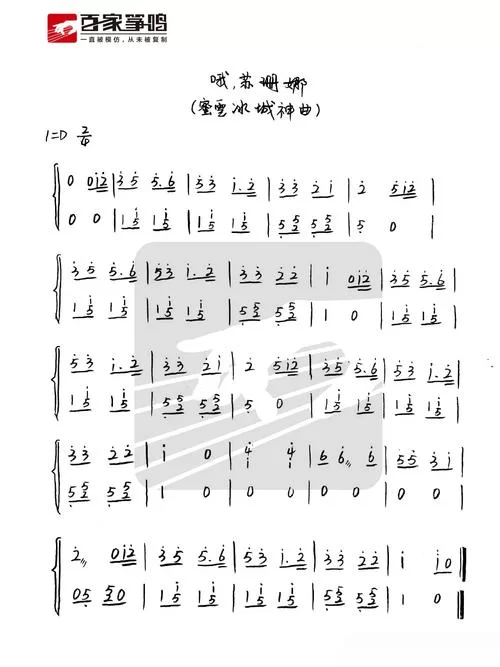 百家筝鸣
一直被模仿，从未被复制
哦，苏珊娜
（蜜雪冰城神曲）
1=D 2/4
0 0i2 | 35 5.6 | 53 i.2 | 33 2i | 2 5i2 |
0 0 | 1i5 1i5 | 1i5 1i5 | 552 552 | 5 0 |
35 5.6 | 53 i.2 | 33 22 | i 0i2 | 35 5.6 |
1i5 1i5 | 1i5 1i5 | 552 552 | 1 0 | 1i5 1i5 |
53 i.2 | 33 2i | 2 5i2 | 35 5.6 | 53 i.2 |
1i5 1i5 | 552 552 | 5 0 | 1i5 1i5 | 1i5 1i5 |
33 22 | i 0 | 4 4 | 66 6 | 55 3i |
552 552 | 1 0 | 0 0 | 0 0 | 0 0 |
2 0i2 | 35 5.6 | 53 i.2 | 33 22 | i i0 |
05 520 | 1i5 1i5 | 1i5 1i5 | 552 552 | 1 0 |